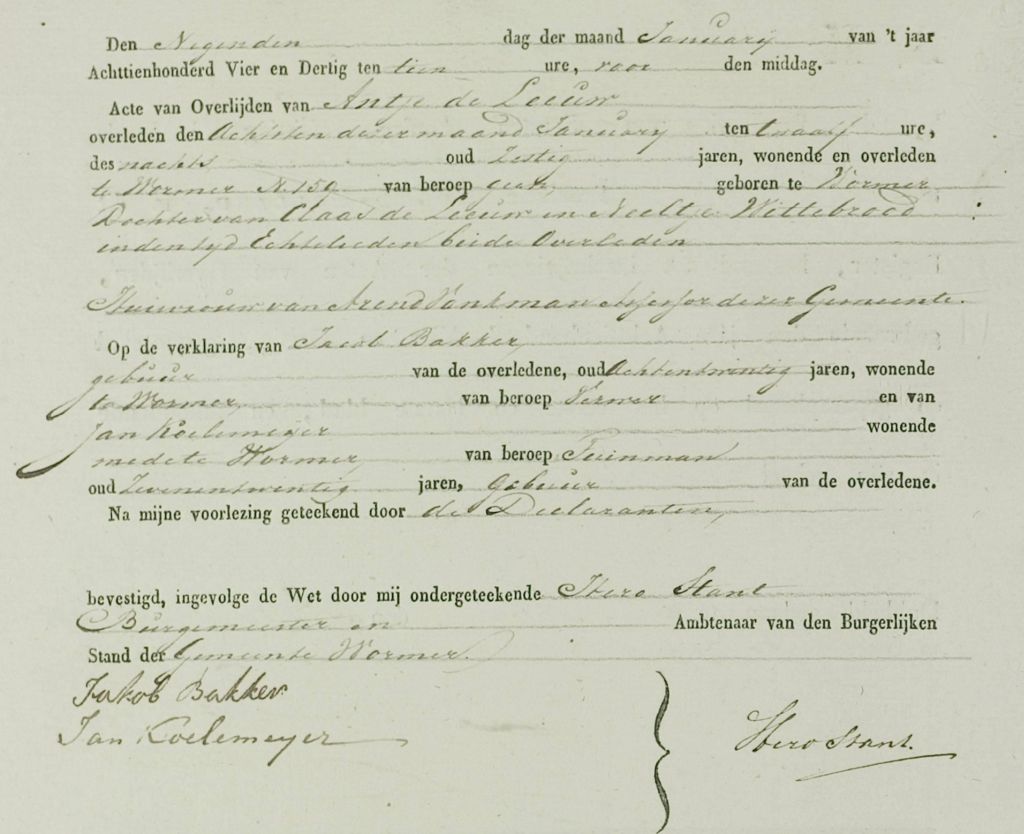 Den Negenden dag der maand January van 't jaar
Achttienhonderd Vier en Dertig ten tien ure, voor den middag.
Acte van Overlijden van Antje de Leeuw
overleden den Achtsten dezer maand January ten twaalf ure,
des nachts oud Zestig jaren, wonende en overleden
te Wormer N. 159 van beroep geen, geboren te Wormer
Dochter van Claas de Leeuw en Neeltje Wittebrood
in den tyd Echtelieden beide Overleden
Huisvrouw van Arend dezer Gemeente.
Op de verklaring van Jacob Bakker,
gebuur van de overledene, oud Achtentwintig jaren, wonende
te Wormer, van beroep Verwer en van
Jan Koelemeyer wonende
mede te Wormer, van beroep Tuinman
oud Zevenentwintig jaren, Gebuur van de overledene.
Na mijne voorlezing geteekend door de Declaranten,
bevestigd, ingevolge de Wet door mij ondergeteekende Hero Stant
Burgemeester en Ambtenaar van den Burgerlijken
Stand der Gemeente Wormer.
Jakob Bakker
Jan Koelemeyer
Hero Stant.